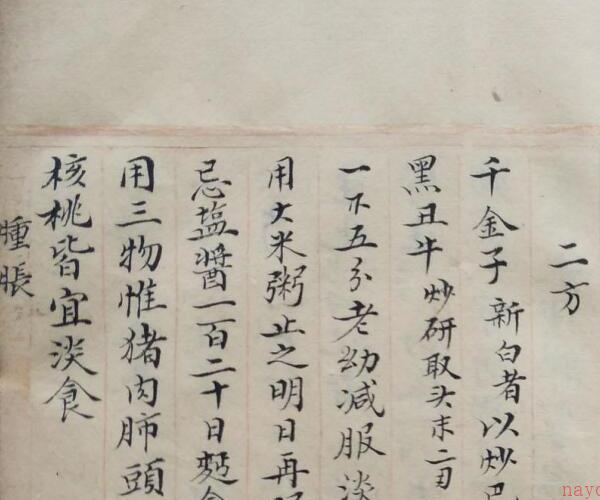 二方
千金子 新白者以炒
黑丑牛 炒研取头末二
一不五分老幼減服淡
用大米粥止之明日再
忌盐醬一百二十日
用三物惟猪肉肺頭
核桃皆宜淡食
腫脹
nayo